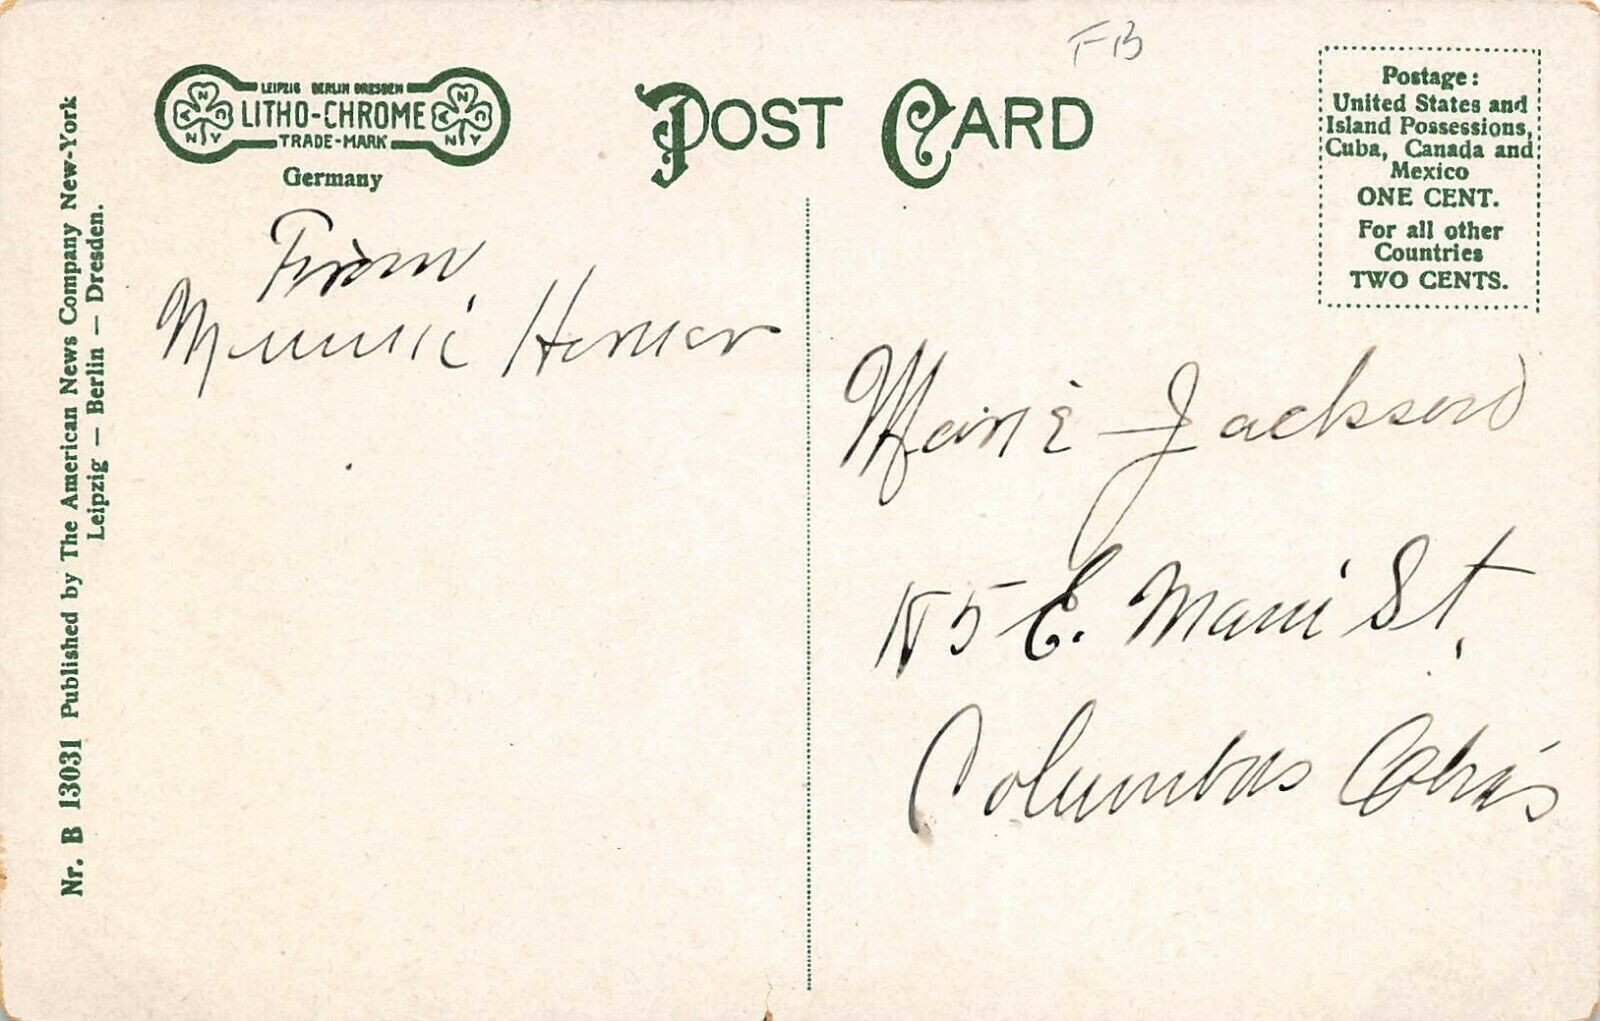 FB
LEIPZIG BERLIN DRESDEN
LITHO-CHROME
TRADE-MARK
N A N C
N Y
N A N C
N Y
Germany
POST CARD
Postage:
United States and
Island Possessions,
Cuba, Canada and
Mexico
ONE CENT.
For all other
Countries
TWO CENTS.
From
Minnie
Marie Jackson
E. Main St.
Columbus
Nr. B 13031 Published by The American News Company New-York
Leipzig — Berlin — Dresden.